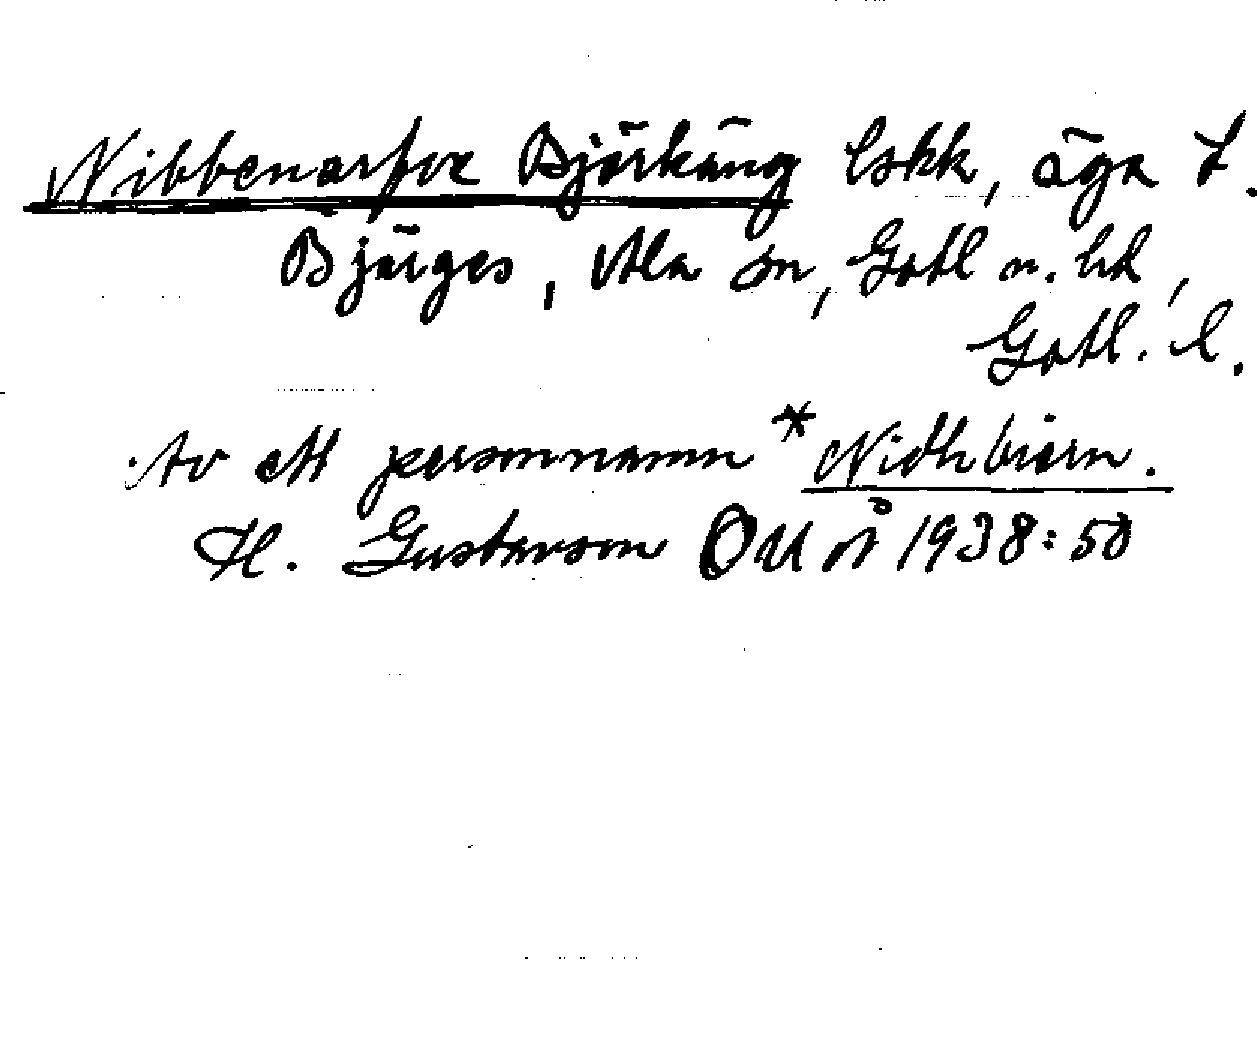 Nibbenarfve Björkäng lskk, äga t.
Björges, Ala sn, Gotl n. hd,
Gotl. l.
Av ett personnamn *Nidhbiern.
H. Gustavson OUÅ 1938:50